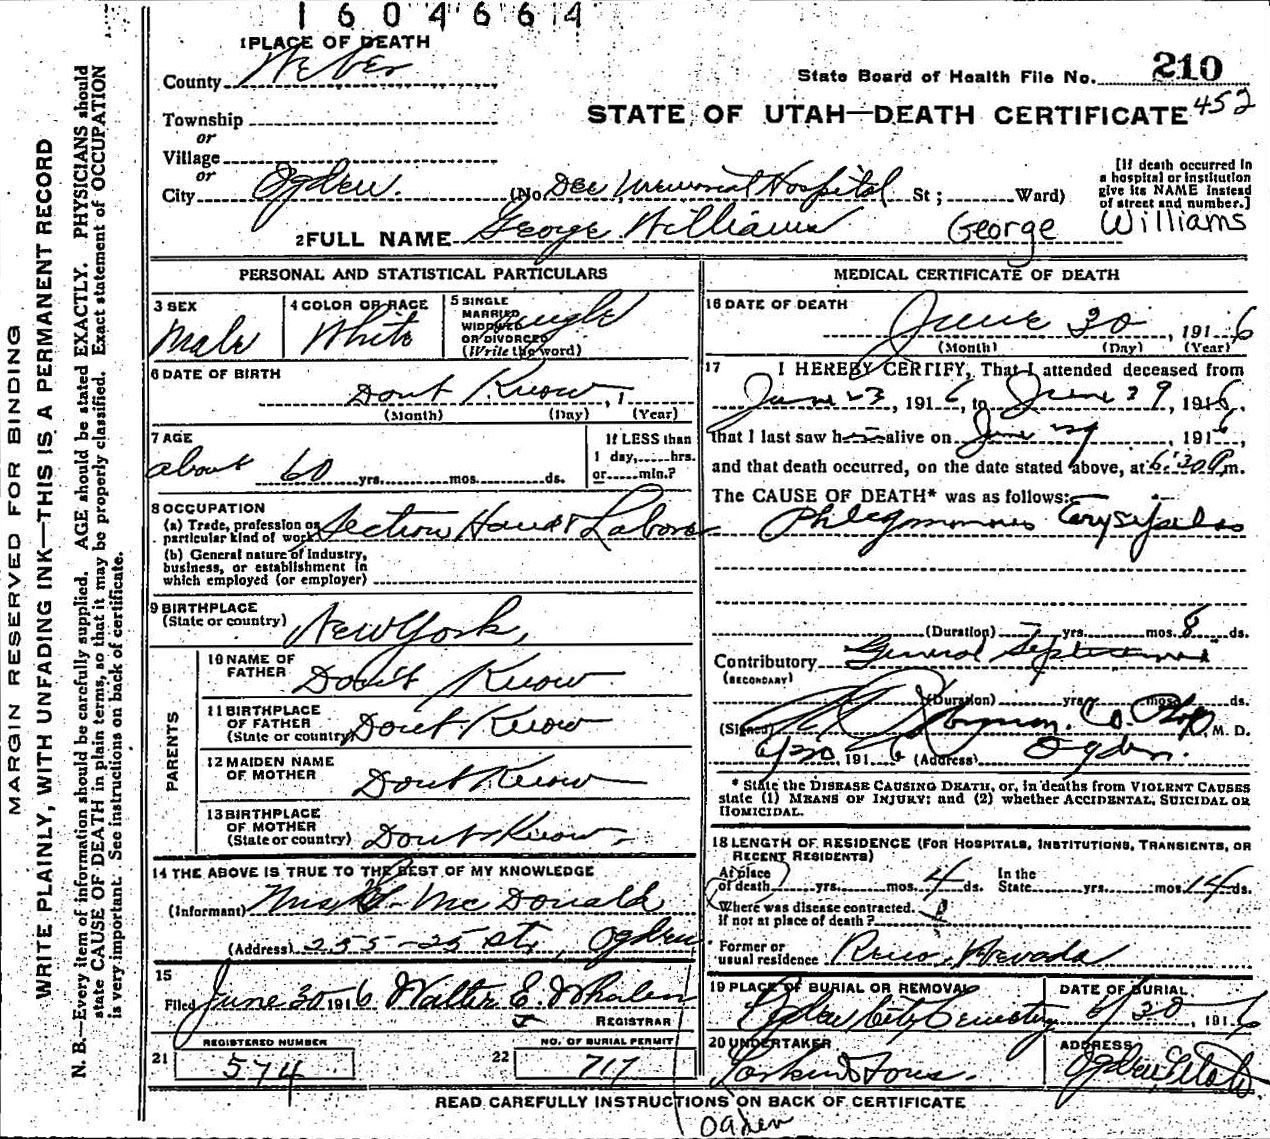 1604664
1 PLACE OF DEATH
County Weber
State Board of Health File No. 210
Township
STATE OF UTAH—DEATH CERTIFICATE 452
or
Village
or
City Ogden. (No. Dee Memorial Hospital St; Ward)
[If death occurred in
a hospital or institution
give its NAME instead
of street and number.]
2 FULL NAME George Williams George Williams
PERSONAL AND STATISTICAL PARTICULARS
3 SEX
Male
4 COLOR OR RACE
White
5 SINGLE
MARRIED
WIDOWED
OR DIVORCED
(Write the word)
Single
6 DATE OF BIRTH
Dont Know, 1
(Month) (Day) (Year)
7 AGE
about 60 yrs. mos. ds.
If LESS than
1 day, hrs.
or min.?
8 OCCUPATION
(a) Trade, profession or
particular kind of work Section Hand & Laborer
(b) General nature of industry,
business, or establishment in
which employed (or employer)
9 BIRTHPLACE
(State or country) New York,
PARENTS
10 NAME OF
FATHER Don't Know
11 BIRTHPLACE
OF FATHER
(State or country) Dont Know
12 MAIDEN NAME
OF MOTHER Dont Know
13 BIRTHPLACE
OF MOTHER
(State or country) Dont Know
14 THE ABOVE IS TRUE TO THE BEST OF MY KNOWLEDGE
(Informant) Mrs McDonald
(Address) 255-25 St, Ogden
15
Filed June 30 1916 Walter E. Whalen
REGISTRAR
REGISTERED NUMBER
21 574
NO. OF BURIAL PERMIT
22 717
MEDICAL CERTIFICATE OF DEATH
16 DATE OF DEATH
June 30, 1916
(Month) (Day) (Year)
17 I HEREBY CERTIFY, That I attended deceased from
June 23, 1916, to June 29, 1916.
that I last saw h alive on June 29, 1916,
and that death occurred, on the date stated above, at 6:30 P.m.
The CAUSE OF DEATH* was as follows:
Phlegmonous Erysipelas
(Duration) yrs. mos. 8 ds.
Contributory General Septicemia
(SECONDARY)
(Duration) yrs. mos. ds.
(Signed) Co. Phys M. D.
6/30 1916 (Address) Ogden.
* State the DISEASE CAUSING DEATH, or, in deaths from VIOLENT CAUSES
state (1) MEANS OF INJURY; and (2) whether ACCIDENTAL, SUICIDAL OR
HOMICIDAL.
18 LENGTH OF RESIDENCE (FOR HOSPITALS, INSTITUTIONS, TRANSIENTS, OR
RECENT RESIDENTS)
At place
of death yrs. mos. 4 ds.
In the
State yrs. mos. 14 ds.
Where was disease contracted.
if not at place of death?
Former or
usual residence Reno, Nevada
19 PLACE OF BURIAL OR REMOVAL
Ogden City Cemetery
DATE OF BURIAL
6/30, 1916
20 UNDERTAKER
Larkin & Sons.
ADDRESS
Ogden, Utah
READ CAREFULLY INSTRUCTIONS ON BACK OF CERTIFICATE
Ogden
MARGIN RESERVED FOR BINDING
WRITE PLAINLY, WITH UNFADING INK—THIS IS A PERMANENT RECORD
N. B.—Every item of information should be carefully supplied. AGE should be stated EXACTLY. PHYSICIANS should
state CAUSE OF DEATH in plain terms, so that it may be properly classified. Exact statement of OCCUPATION
is very important. See instructions on back of certificate.